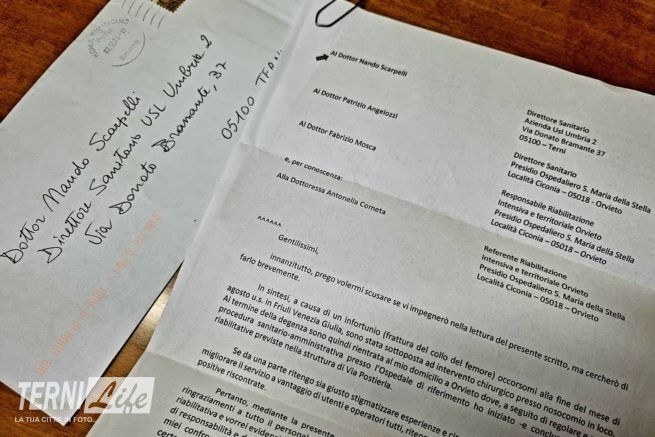 Dottor Nando Scarpelli
Direttore Sanitario USL Umbria 2
Via Donato Bramante, 37
05100 TERNI
Al Dottor Nando Scarpelli
Direttore Sanitario
Azienda Usl Umbria 2
Via Donato Bramante 37
05100 – Terni
Al Dottor Patrizio Angelozzi
Direttore Sanitario
Presidio Ospedaliero S. Maria della Stella
Località Ciconia – 05018 - Orvieto
Al Dottor Fabrizio Mosca
Responsabile Riabilitazione
Intensiva e territoriale Orvieto
Presidio Ospedaliero S. Maria della Stella
Località Ciconia – 05018 - Orvieto
e, per conoscenza:
Alla Dottoressa Antonella Cometa
Referente Riabilitazione
Intensiva e territoriale Orvieto
Presidio Ospedaliero S. Maria della Stella
Località Ciconia – 05018 - Orvieto
^^^^^^
Gentilissimi,
innanzitutto, prego volermi scusare se vi impegnerò nella lettura del presente scritto, ma cercherò di
farlo brevemente.
In sintesi, a causa di un infortunio (frattura del collo del femore) occorsomi alla fine del mese di
agosto u.s. in Friuli Venezia Giulia, sono stata sottoposta ad intervento chirurgico presso nosocomio in loco.
Al termine della degenza sono quindi rientrata al mio domicilio a Orvieto dove, a seguito di regolare
procedura sanitario-amministrativa presso l'Ospedale di riferimento ho iniziato -e conclu
riabilitative previste nella struttura di Via Postierla.
Se da una parte ritengo sia giusto stigmatizzare esperienze e
migliorare il servizio a vantaggio di utenti e operatori tutti, riten
positive riscontrate.
Pertanto, mediante la presente
ringraziamenti a tutto il personal
riabilitativa e vorrei eviden
di responsabilità e d
miei confro
certe
TERNI Life
LA TUA CITTA' IN FOTO